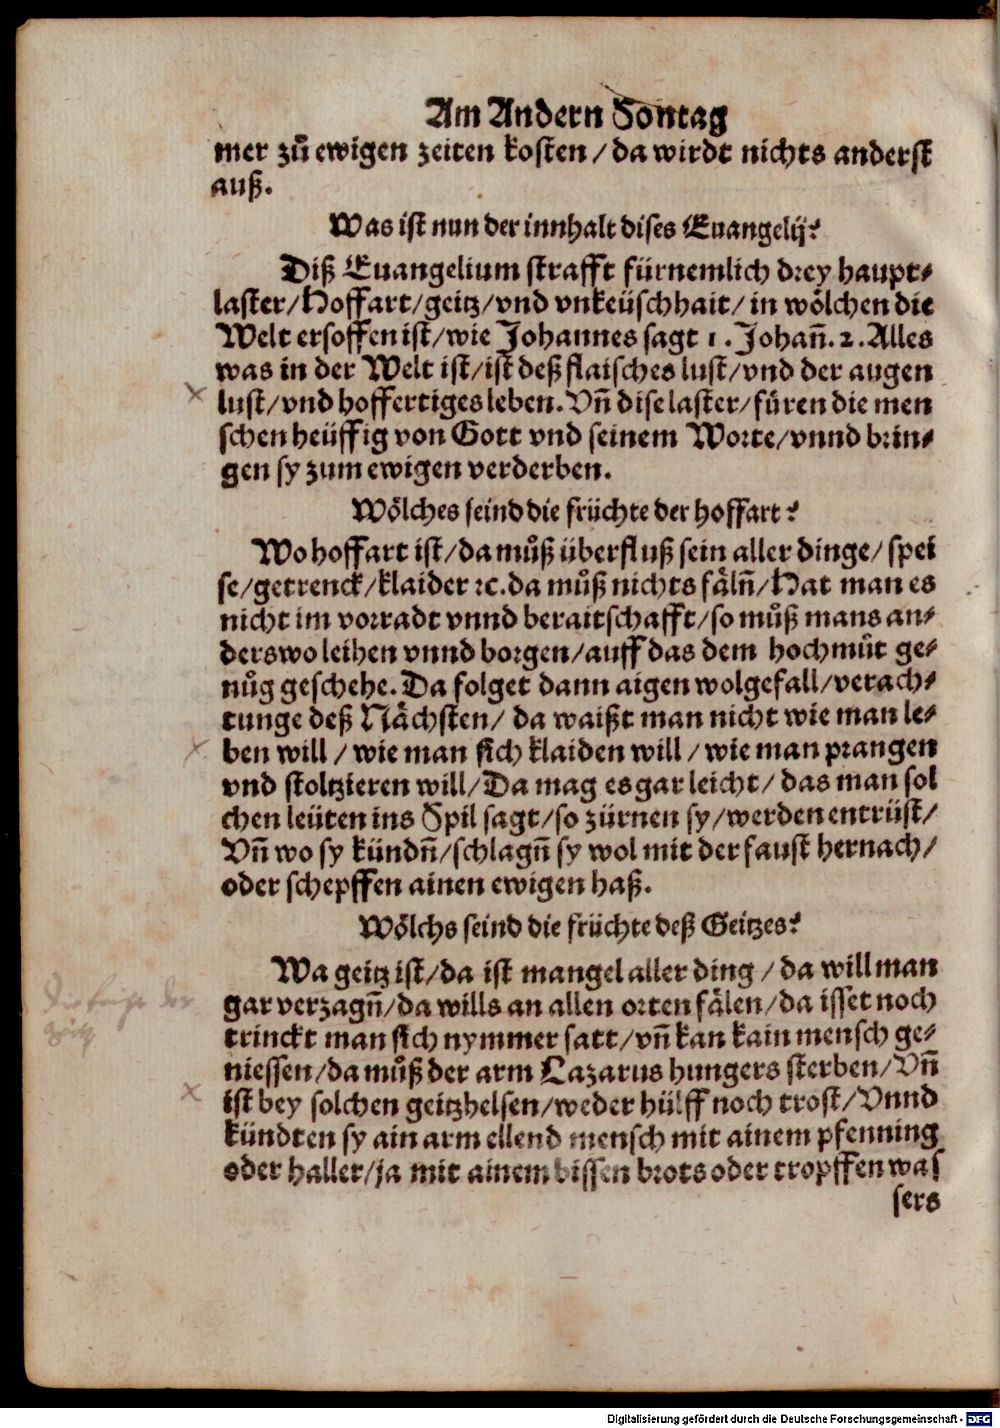 Am Andern Sontag
mer zů ewigen zeiten kosten / da wirdt nichts anderst
auß.
Was ist nun der innhalt dises Euangelij?
Diß Euangelium strafft fürnemlich drey haupt-
laster / Hoffart / geitz / vnd vnkeüschhait / in wölchen die
Welt ersoffen ist / wie Johannes sagt 1. Johañ. 2. Alles
was in der Welt ist / ist deß flaisches lust / vnd der augen
lust / vnd hoffertiges leben. Vñ dise laster / füren die men
schen heüffig von Gott vnd seinem Worte / vnnd brin-
gen sy zum ewigen verderben.
Wölches seind die früchte der hoffart?
Wo hoffart ist / da můß überfluß sein aller dinge / spei
se / getrenck / klaider ꝛc. da můß nichts fäln̄ / Hat man es
nicht im vorradt vnnd beraitschafft / so můß mans an-
derswo leihen vnnd borgen / auff das dem hochmůt ge-
nůg geschehe. Da folget dann aigen wolgefall / verach-
tunge deß Nächsten / da waißt man nicht wie man le-
ben will / wie man sich klaiden will / wie man prangen
vnd stoltzieren will / Da mag es gar leicht / das man sol
chen leüten ins Spil sagt / so zürnen sy / werden entrüst /
Vñ wo sy kündn̄ / schlagn̄ sy wol mit der faust hernach /
oder schepffen ainen ewigen haß.
Wölchs seind die früchte deß Geitzes?
Wa geitz ist / da ist mangel aller ding / da will man
gar verzagn̄ / da wills an allen orten fälen / da isset noch
trinckt man sich nymmer satt / vñ kan kain mensch ge-
niessen / da můß der arm Lazarus hungers sterben / Vñ
ist bey solchen geitzhelsen / weder hülff noch trost / Vnnd
kündten sy ain arm ellend mensch mit ainem pfenning
oder haller / ja mit ainem bissen brots oder tropffen was
sers
Digitalisierung gefördert durch die Deutsche Forschungsgemeinschaft - DFG